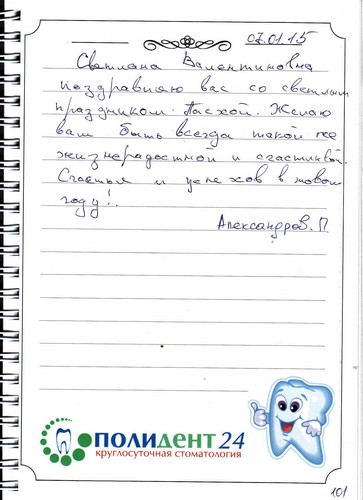 07.01.15
Светлана Валентиновна
поздравляю вас со светлым
праздником Пасхой. Желаю
вам быть всегда такой же
жизнерадостной и счастливой.
Счастья и успехов в новом
году!.
Александров. П
ПОЛИДЕНТ 24
круглосуточная стоматология
101